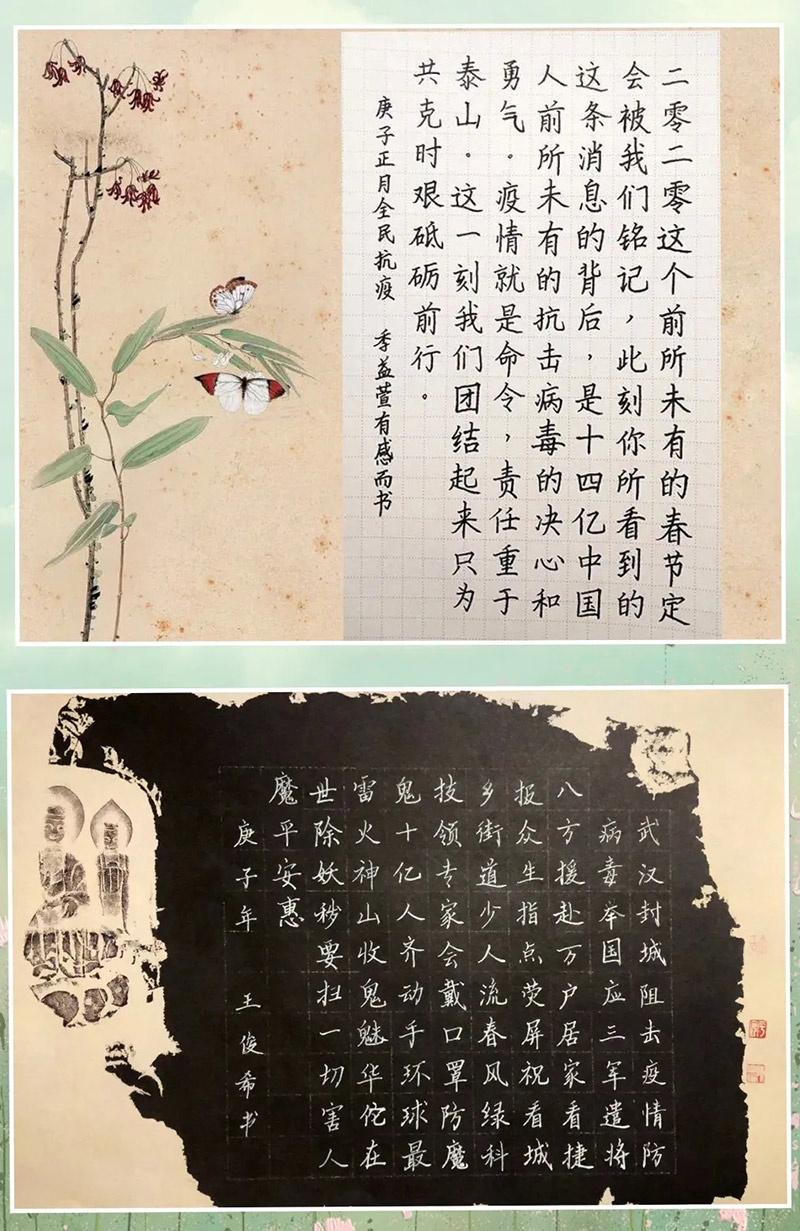 二零二零这个前所未有的春节定
会被我们铭记，此刻你所看到的
这条消息的背后，是十四亿中国
人前所未有的抗击病毒的决心和
勇气。疫情就是命令，责任重于
泰山。这一刻我们团结起来只为
共克时艰砥砺前行。
庚子正月全民抗疫 季益萱有感而书
武汉封城阻去疫情防
病毒举国应三军遣将
八方援赴万户居家看捷
报众生指点荧屏祝看城
乡街道少人流春风绿科
技领专家会戴口罩防魔
鬼十亿人齐动手环球最
雷火神山收鬼魅华佗在
世除妖秽要扫一切害人
魔平安惠
庚子年 王俊希书